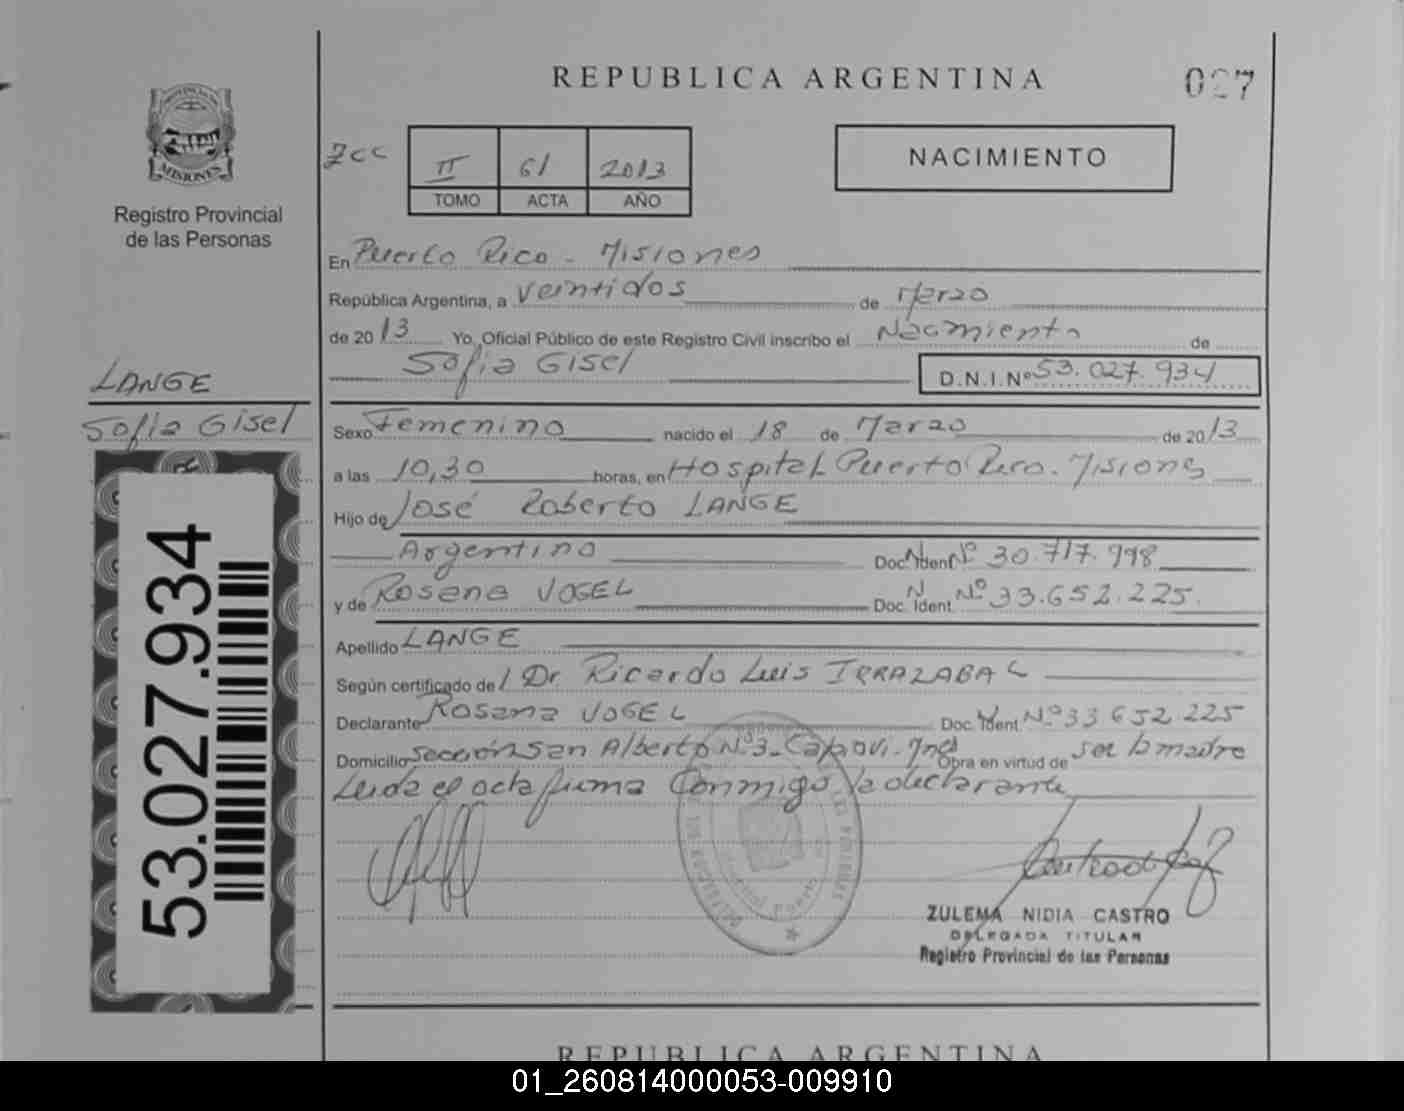 REPUBLICA ARGENTINA
027
PROVINCIA DE
MISIONES
Registro Provincial
de las Personas
II 61 2013
TOMO ACTA AÑO
NACIMIENTO
En Puerto Rico - Misiones
República Argentina, a veintidos de Marzo
de 2013 Yo, Oficial Público de este Registro Civil inscribo el Nacimiento de
Sofia Gisel D.N.I.Nº 53.027.934
LANGE
Sofia Gisel
Sexo Femenino nacido el 18 de Marzo de 2013
a las 10,30 horas, en Hospital Puerto Rico. Misiones
Hijo de José Roberto LANGE
Argentino Doc. Ident. Nº 30.717.998
y de Rosana VOGEL Doc. Ident. Nº 33.652.225.
Apellido LANGE
Según certificado de Dr. Ricardo Luis IRRAZABAL
Declarante Rosana VOGEL Doc. Ident. Nº 33 652 225
Domicilio sección San Alberto N.3- Capiovi - Mnes Obra en virtud de ser la madre
Leida el acta firma conmigo la declarante
53.027.934
ZULEMA NIDIA CASTRO
DELEGADA TITULAR
Registro Provincial de las Personas
REPUBLICA ARGENTINA
01_260814000053-009910